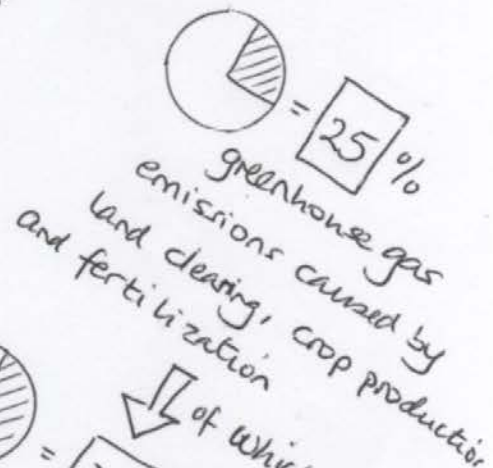 = 25 %
greenhouse gas
emissions caused by
land clearing, crop production
and fertilization
of which
=